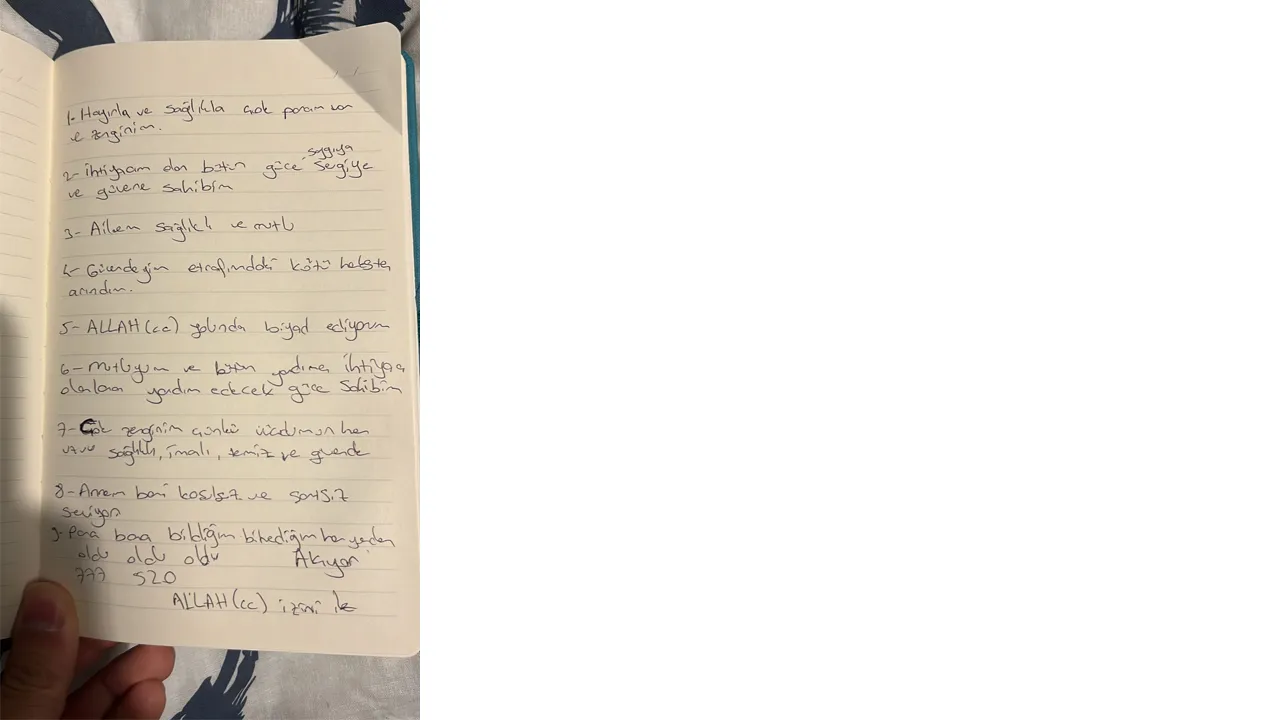 1- Hayırla ve sağlıkla çok param var
ve zenginim.
saygıya
2- ihtiyacım olan bütün güce sevgiye
ve güvene sahibim
3- Ailem sağlıklı ve mutlu
4- Güvendeyim etrafımdaki kötü
arındım.
5- ALLAH(cc) yolunda ediyorum
6- mutluyum ve bütün yardıma ihtiyacı
olanlara yardım edecek güce sahibim
7- Çok zenginim çünkü vücudumun her
uzvu sağlıklı, temiz ve güvende
8- Annem beni koşulsuz ve şartsız
seviyor
9- Para bana bildiğim bilmediğim her yerden
oldu oldu oldu Akıyor
777 520
ALLAH(cc) izni ile